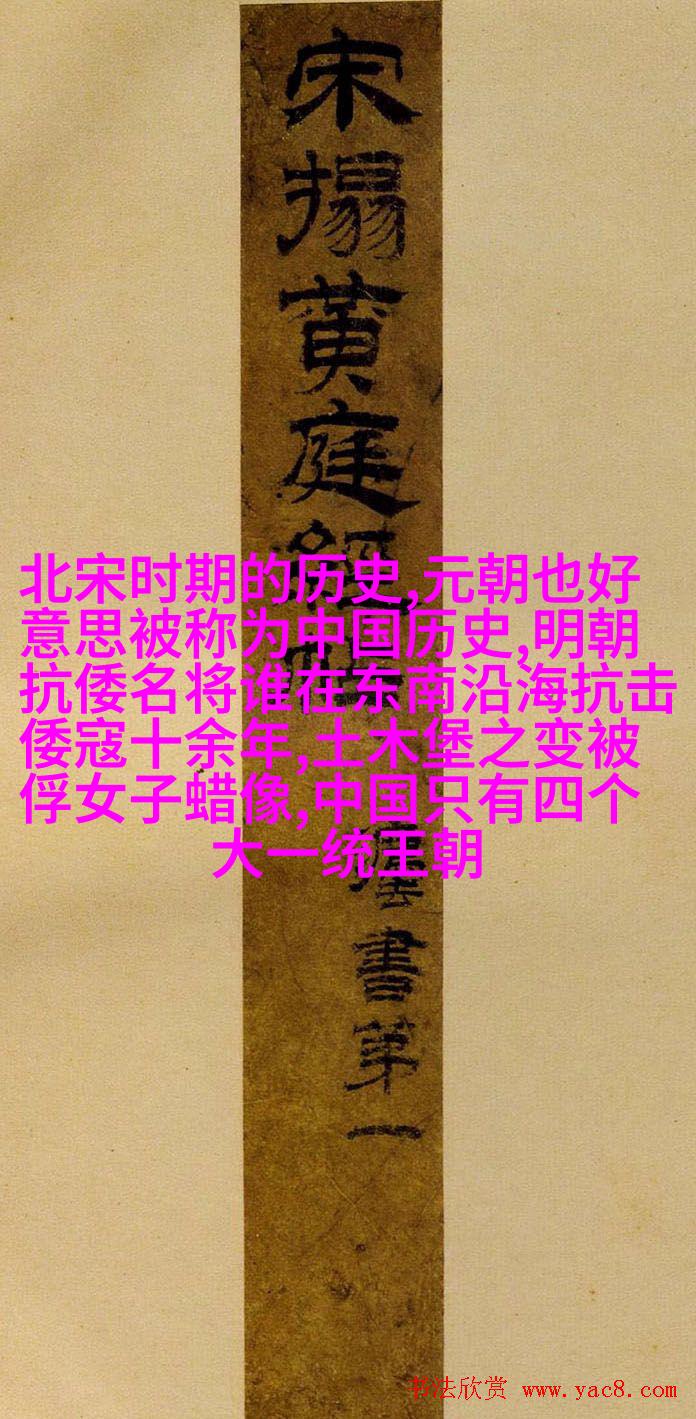 宋搨黄庭經
書第一
北宋时期的历史,元朝也好
意思被称为中国历史,明朝
抗倭名将谁在东南沿海抗击
倭寇十余年,土木堡之变被
俘女子蜡像,中国只有四个
大一统王朝
书法欣赏 www.yac8.com